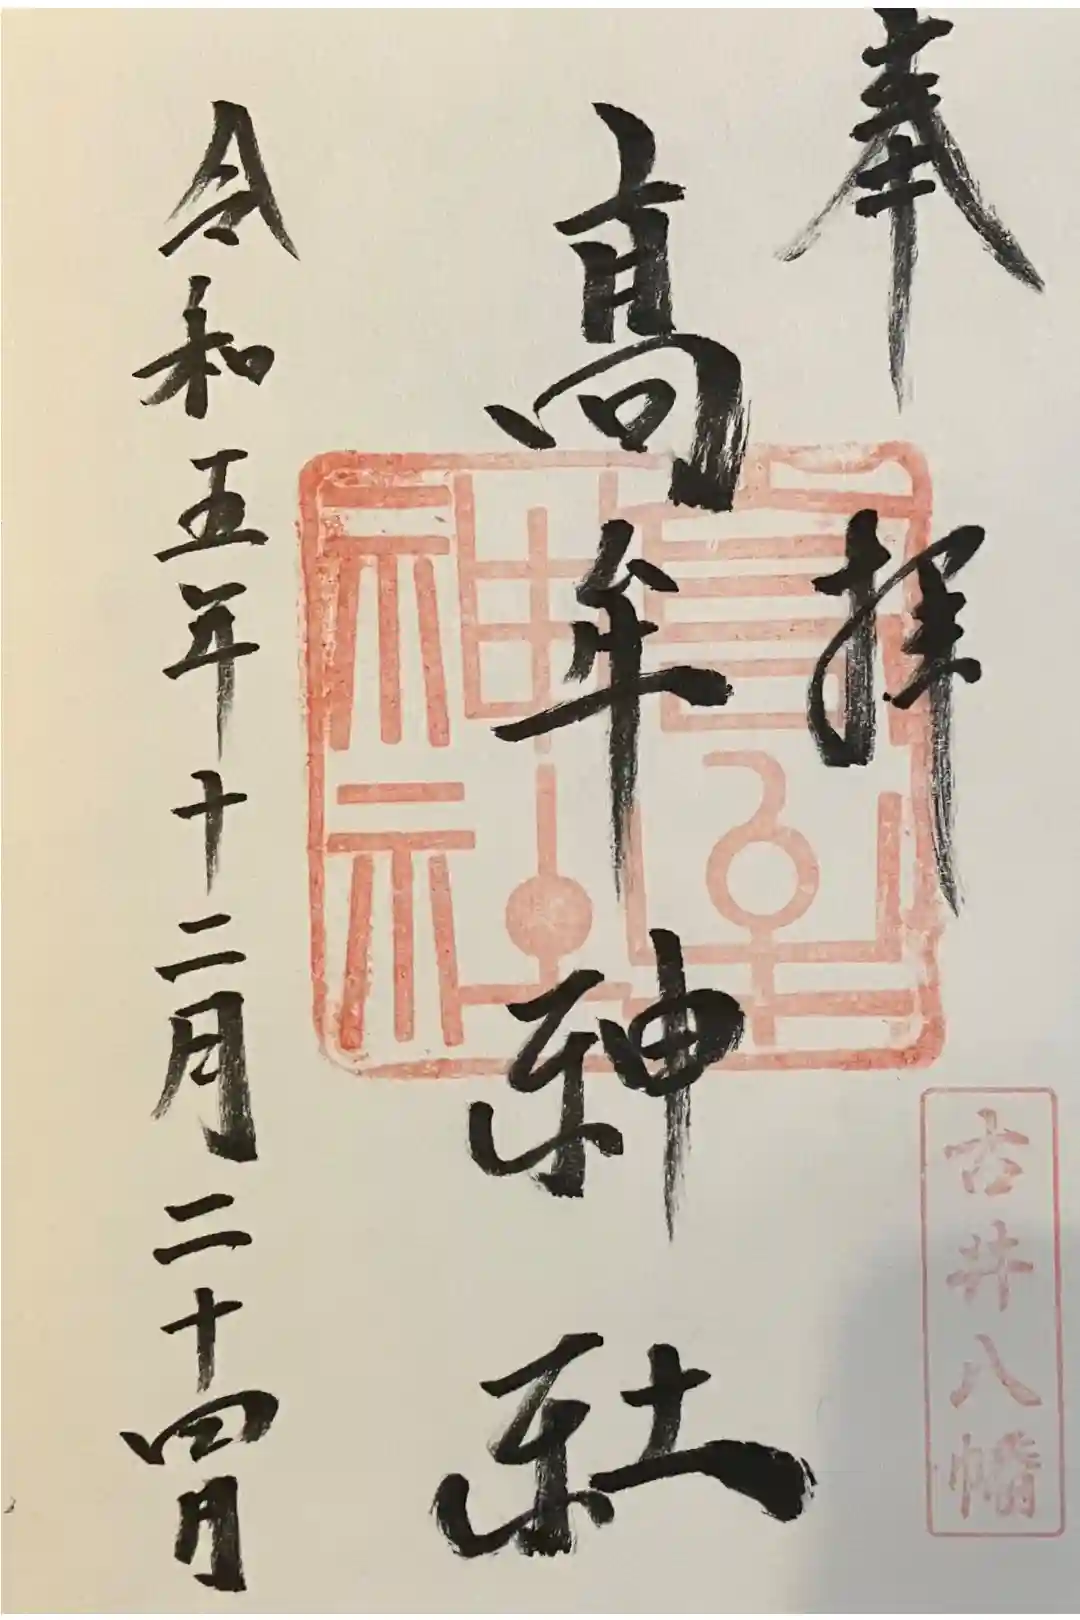 奉拝
古井八幡
髙牟神社
髙牟神社
令和五年十二月二十四日